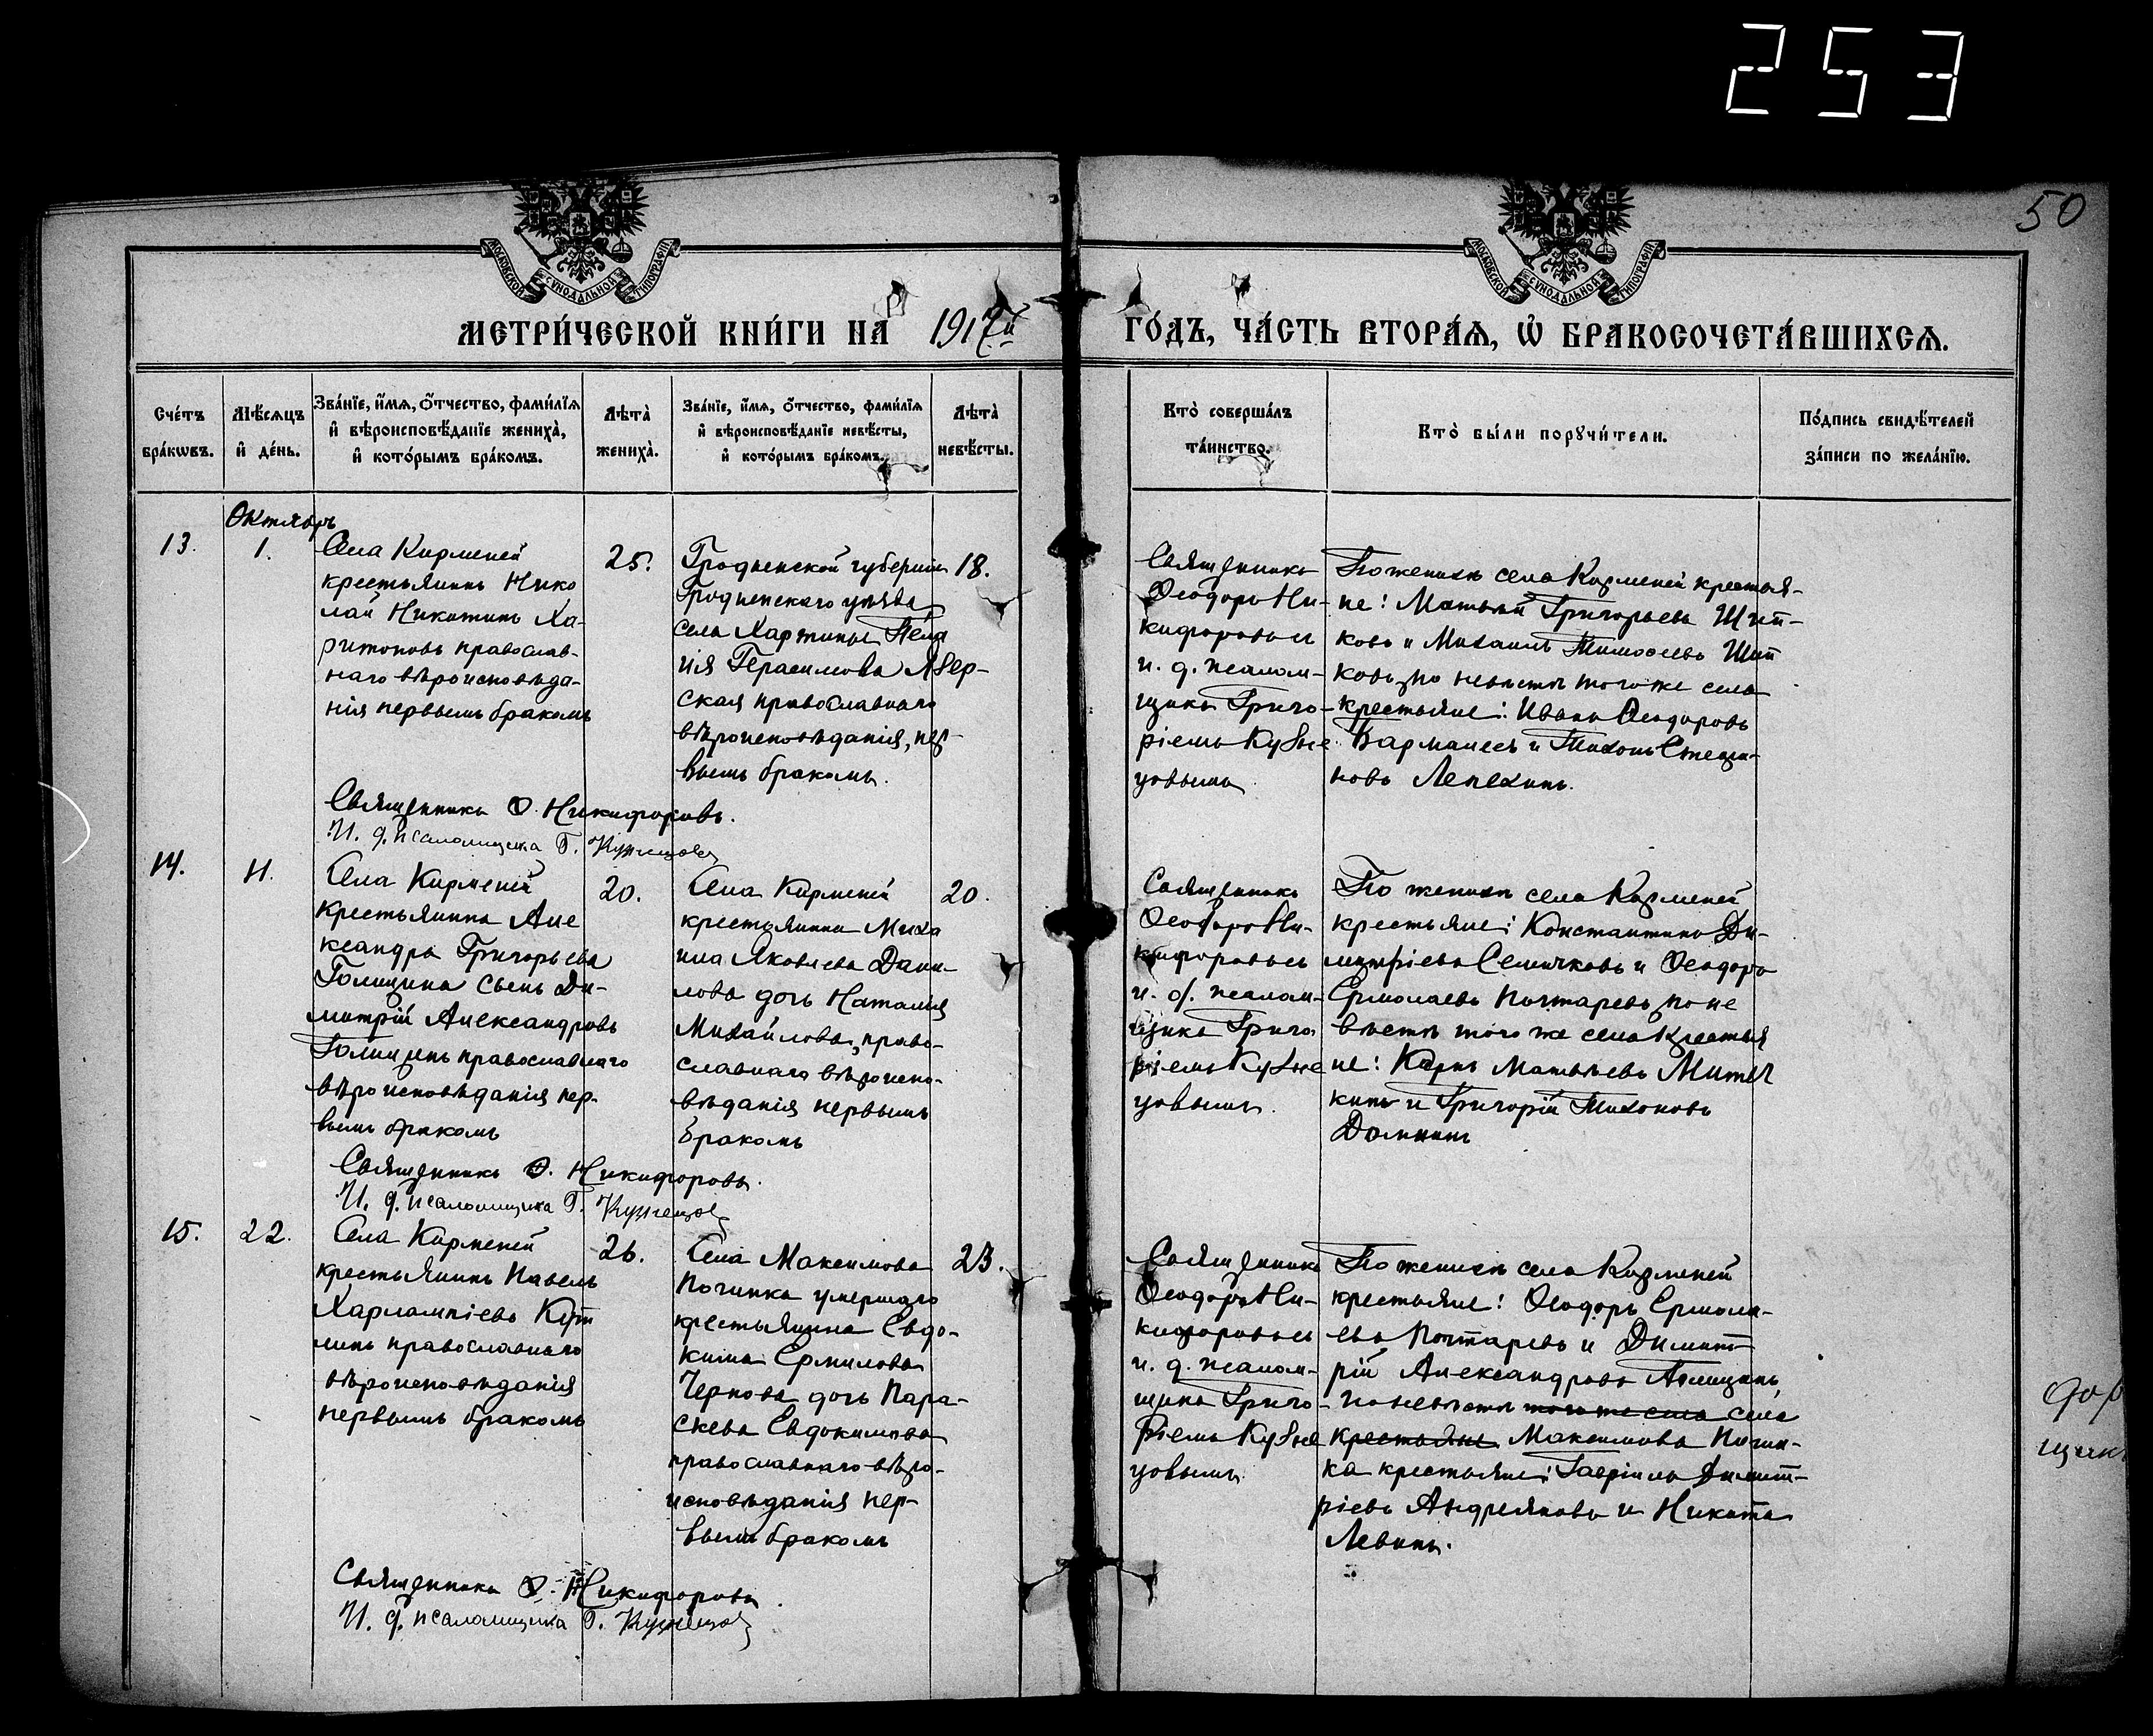 253
50
МОСКОВСКОЙ СУНОДАЛЬНОЙ ТИПОГРАФІИ
МОСКОВСКОЙ СУНОДАЛЬНОЙ ТИПОГРАФІИ
МЕТРИ́ЧЕСКОЙ КНИ́ГИ НА 1917й ГО́ДЪ, ЧА́СТЬ ВТОРА́Я, Ѽ БРАКОСОЧЕТА́ВШИХСЯ.
Сче́тъ
бра́кѡвъ.
Мѣ́сяцъ
и҆ де́нь.
Зва́нїе, и҆́мя, о҆́тчество, фами́лїя
и҆ вѣроисповѣ́данїе жениха̀,
и҆ кото́рымъ бра́комъ.
Лѣта̀
жениха̀.
Зва́нїе, и҆́мя, о҆́тчество, фами́лїя
и҆ вѣроисповѣ́данїе невѣ́сты,
и҆ кото́рымъ бра́комъ.
Лѣта̀
невѣ́сты.
Кто̀ соверша́лъ
та́инство.
Кто̀ бы́ли порꙋчи́тели.
По́дпись свидѣ́телей
за́писи по жела́нїю.
Октябрь
13.
1.
Села Кирменей
крестьянинъ Нико
лай Никитинъ Ха-
ритоновъ православ-
наго вѣроисповѣда-
нія первымъ бракомъ
25.
Гродненской губерніи
Гродненскаго уѣзда
села Хартицы Пела
гія Герасимова
ская православнаго
вѣроисповѣданія, пер-
вымъ бракомъ.
18.
Священникъ
Ѳеодоръ Ни-
кифоровъ съ
и. д. псалом-
щика Григо-
ріемъ Кузне
цовымъ
По женихѣ села Кирменей крестья-
не: Матвѣй Григорьевъ Шит-
ковъ и Михаилъ Тимоѳеевъ Шит
ковъ, по невѣстѣ того же села
крестьяне: Иванъ Ѳеодоровъ
и Тихонъ Степа-
новъ Лепехинъ.
Священникъ Ѳ. Никифоровъ.
И. д. псаломщика Г. Кузнецовъ
14.
11.
Села Кирменей
крестьянина Але
ксандра Григорьева
Голицина сынъ Ди-
митрій Александровъ
Голицинъ православнаго
вѣроисповѣданія пер-
вымъ бракомъ
20.
Села Кирменей
крестьянина Миха
ила Яковлева Дани-
лова дочь Наталія
Михайлова, право-
славнаго вѣроиспо-
вѣданія первымъ
бракомъ
20.
Священникъ
Ѳеодоръ Ни-
кифоровъ съ
и. д. псалом-
щика Григо
ріемъ Кузне
цовымъ.
По женихѣ села Кирменей
крестьяне: Константинъ Ди-
митріевъ Семичковъ и Ѳеодоръ
Ермолаевъ Почтаревъ, по не
вѣстѣ того же села крестья
не: Карпъ Матвѣевъ
кинъ и Григорій Тихоновъ
Доминъ
Священникъ Ѳ. Никифоровъ.
И. д. псаломщика Г. Кузнецовъ
15.
22.
Села Кирменей
крестьянинъ Павелъ
Харлампіевъ
линъ православнаго
вѣроисповѣданія
первымъ бракомъ
26.
Села Максимова
Починка умершаго
крестьянина Евдо-
кима Ермилова
Чернова дочь Пара-
скева Евдокимова
православнаго вѣро-
исповѣданія пер-
вымъ бракомъ
23.
Священникъ
Ѳеодоръ Ни-
кифоровъ съ
и. д. псалом-
щика Григо-
ріемъ Кузне
цовымъ.
По женихѣ села Кирменей
крестьяне: Ѳеодоръ Ермола-
евъ Почтаревъ и Димит-
рій Александровъ Голицинъ,
по невѣстѣ того же села села
крестьяне Максимова Почин-
ка крестьяне: Гавріилъ Димит-
ріевъ Андреяновъ и Никита
Левинъ.
Священникъ Ѳ. Никифоровъ.
И. д. псаломщика Г. Кузнецовъ